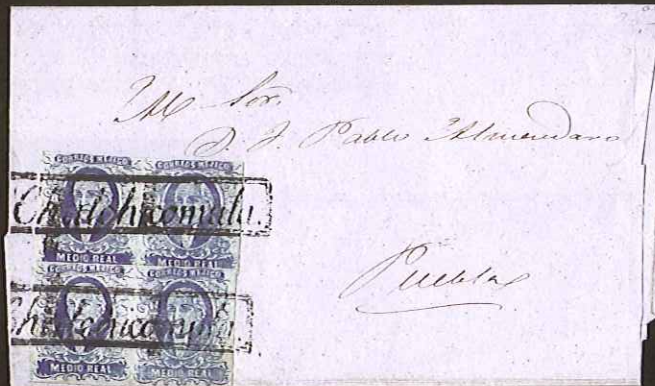 Sor.
D. J. Pablo Almendaro
Puebla
CORREOS MEJICO CORREOS MEJICO
Chalchicomula.
MEDIO REAL MEDIO REAL
CORREOS MEJICO CORREOS MEJICO
Chalchicomula.
MEDIO REAL MEDIO REAL